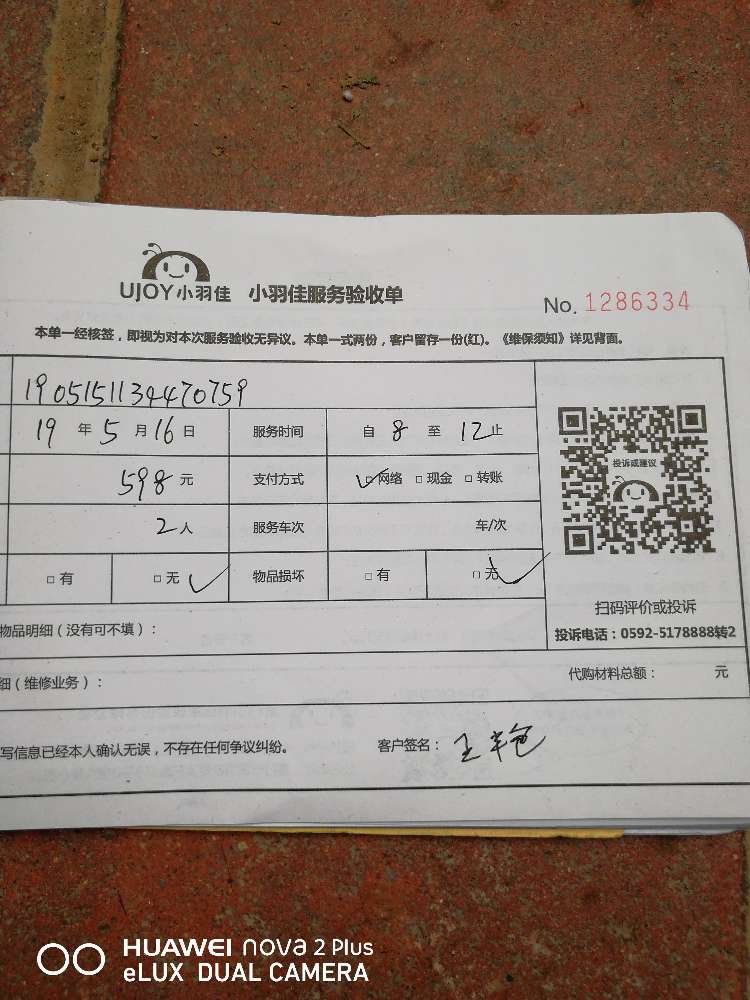 UJOY小羽佳 小羽佳服务验收单 No. 1286334
本单一经核签，即视为对本次服务验收无异议。本单一式两份，客户留存一份(红)。《维保须知》详见背面。
1905151134470759
19 年 5 月 16 日 服务时间 自 8 至 12 止
598 元 支付方式 □网络 □现金 □转账
2人 服务车次 车/次
□有 □无 物品损坏 □有 □无
投诉或建议
扫码评价或投诉
投诉电话：0592-5178888转2
物品明细（没有可不填）：
细（维修业务）： 代购材料总额： 元
写信息已经本人确认无误，不存在任何争议纠纷。 客户签名：王艳
HUAWEI nova 2 Plus
eLUX DUAL CAMERA